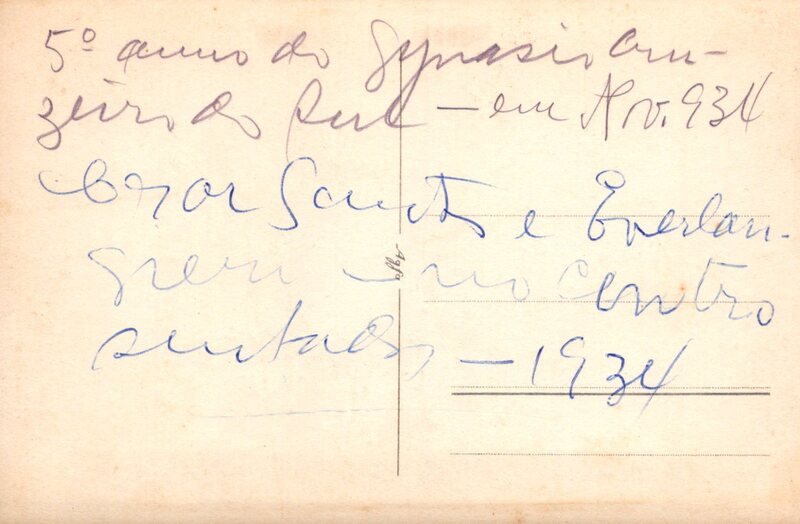 5º anno do Gynasio Cru-
zeiro do Sul — em Nov. 934
Cezar Santos e Everlan-
gieri — no centro
sentados — 1934
Agfa